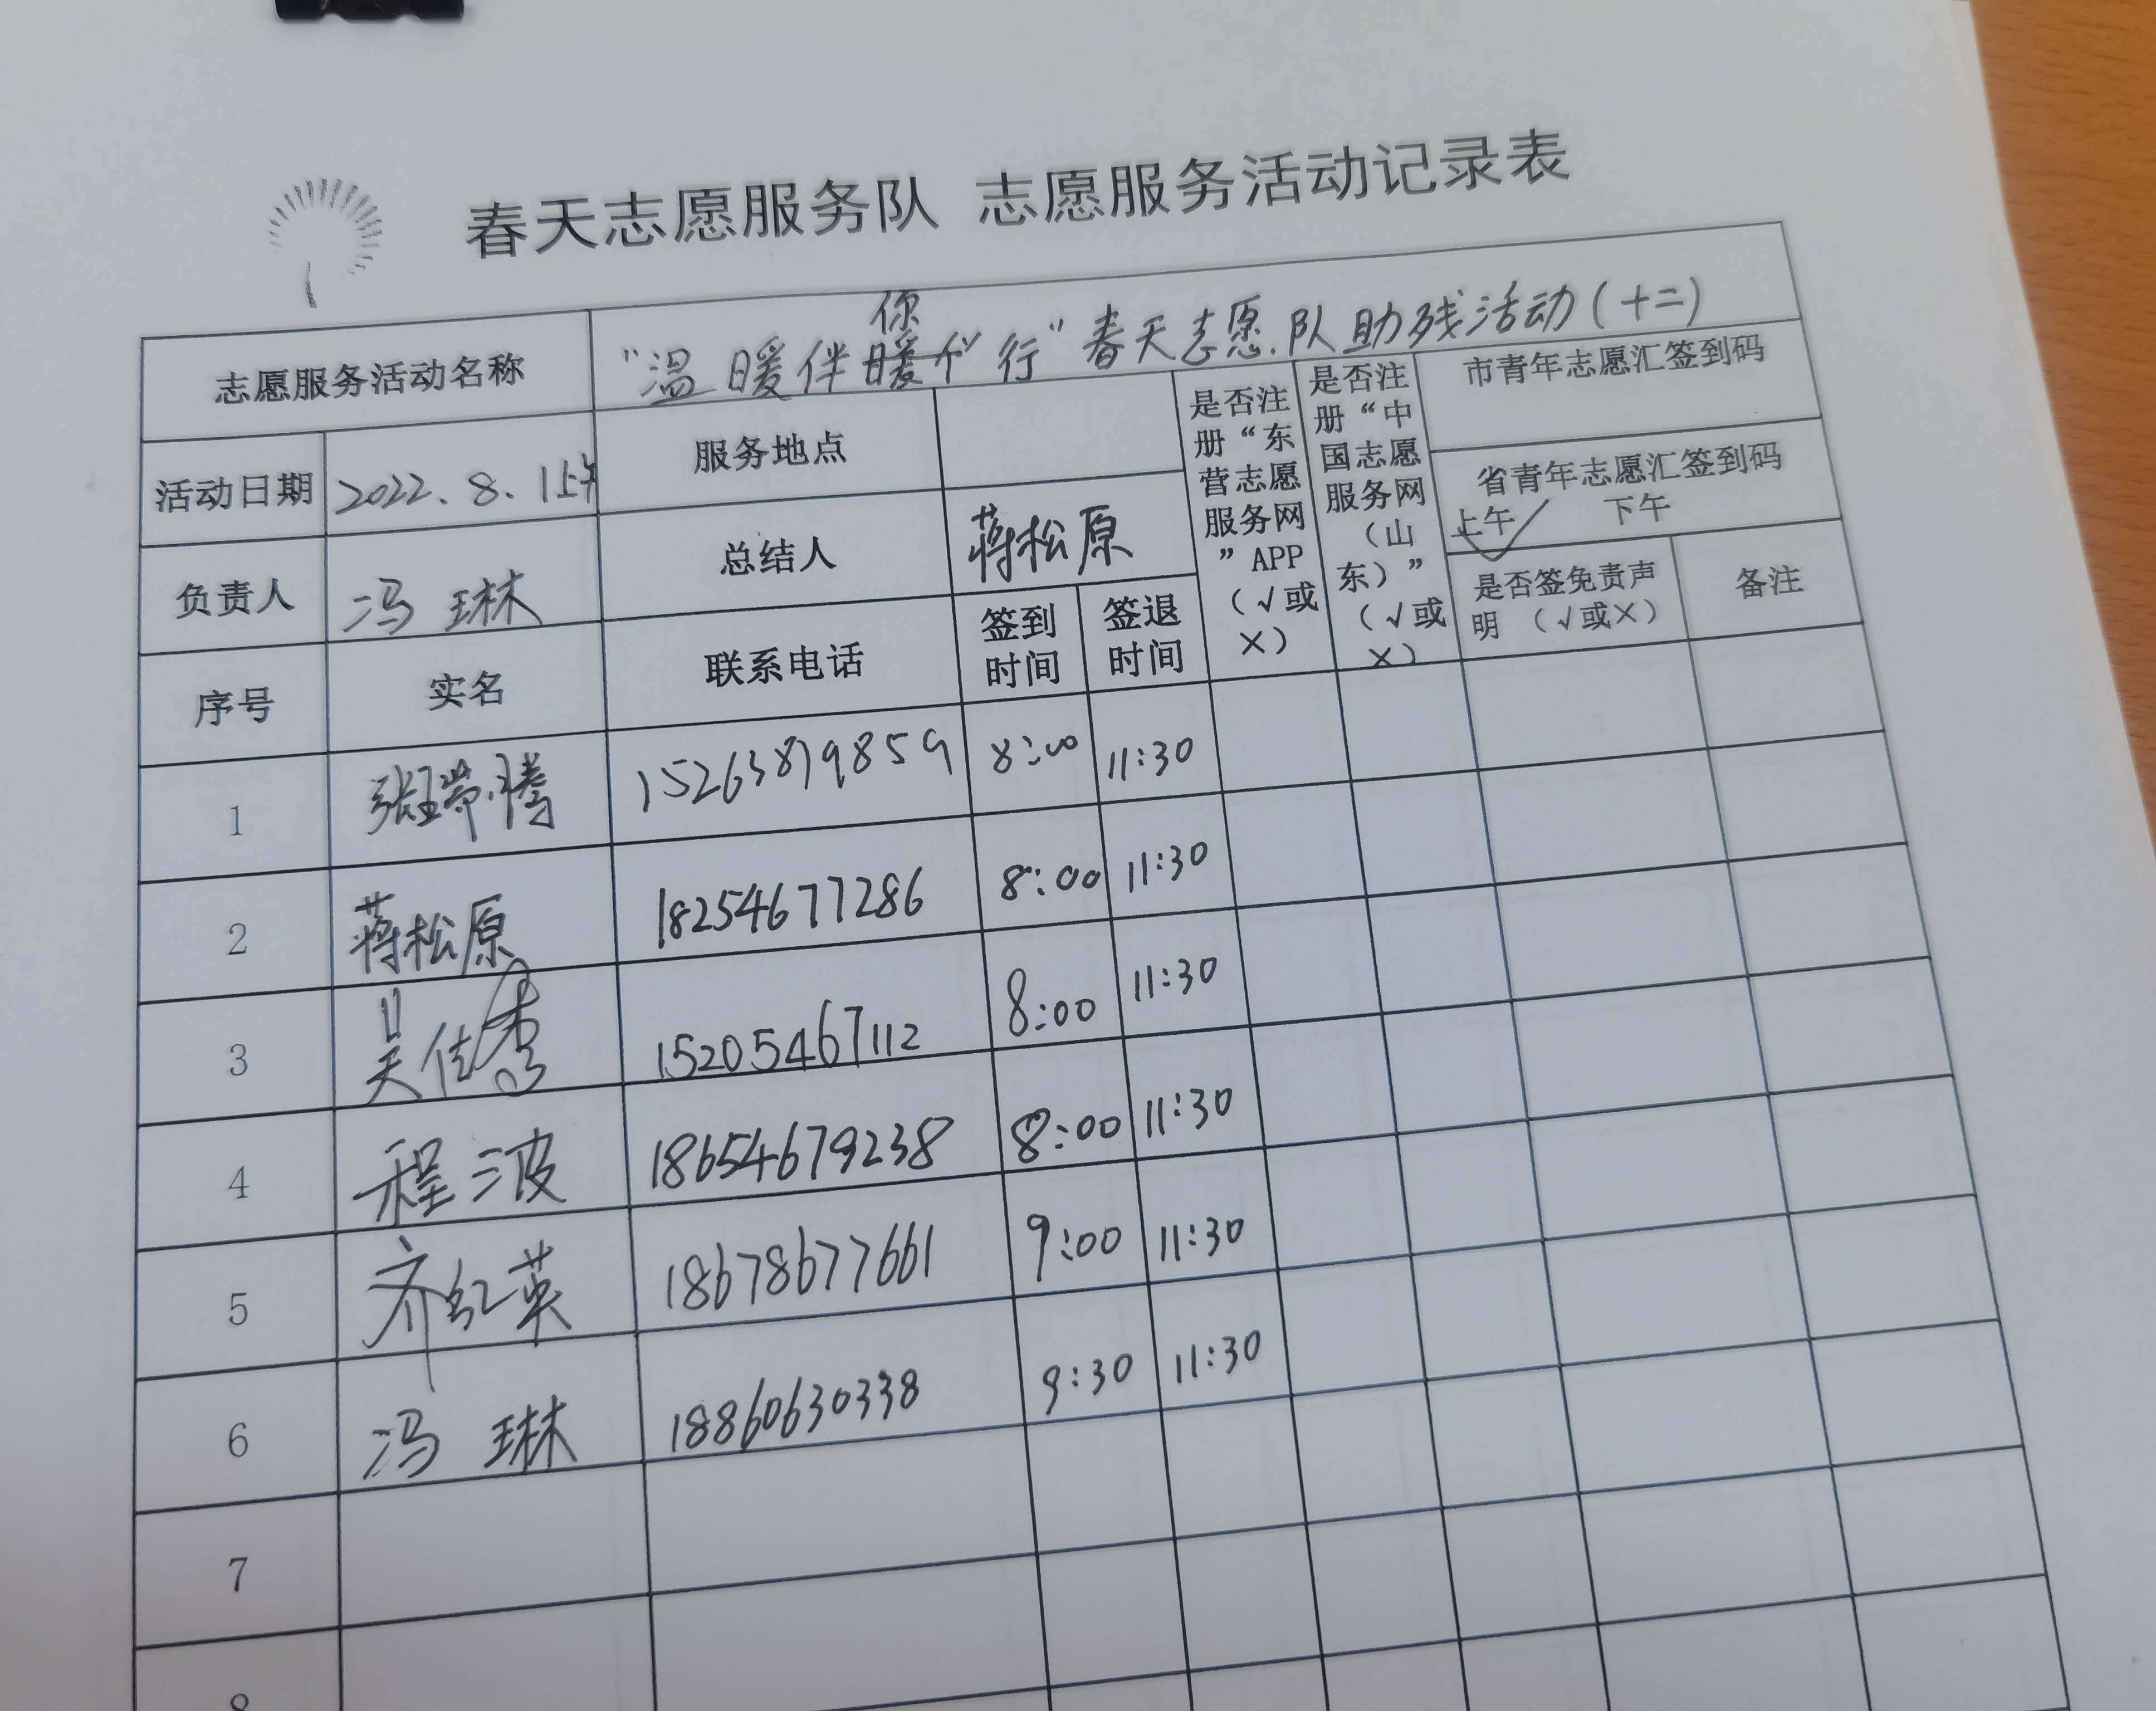 春天志愿服务队 志愿服务活动记录表
志愿服务活动名称
你
“温暖伴行”春天志愿队助残活动(十二)
活动日期
2022.8.1上午
服务地点
是否注册“东营志愿服务网”APP(√或×)
是否注册“中国志愿服务网(山东)”(√或×)
市青年志愿汇签到码
省青年志愿汇签到码
上午√ 下午
负责人
冯琳
总结人
蒋松原
是否签免责声明(√或×)
备注
序号 实名 联系电话 签到时间 签退时间
1 张瑞腾 15263879859 8:00 11:30
2 蒋松原 18254677286 8:00 11:30
3 吴佳秀 15205467112 8:00 11:30
4 程波 18654679238 8:00 11:30
5 齐红英 18678677661 9:00 11:30
6 冯琳 18860630338 9:30 11:30
7
8